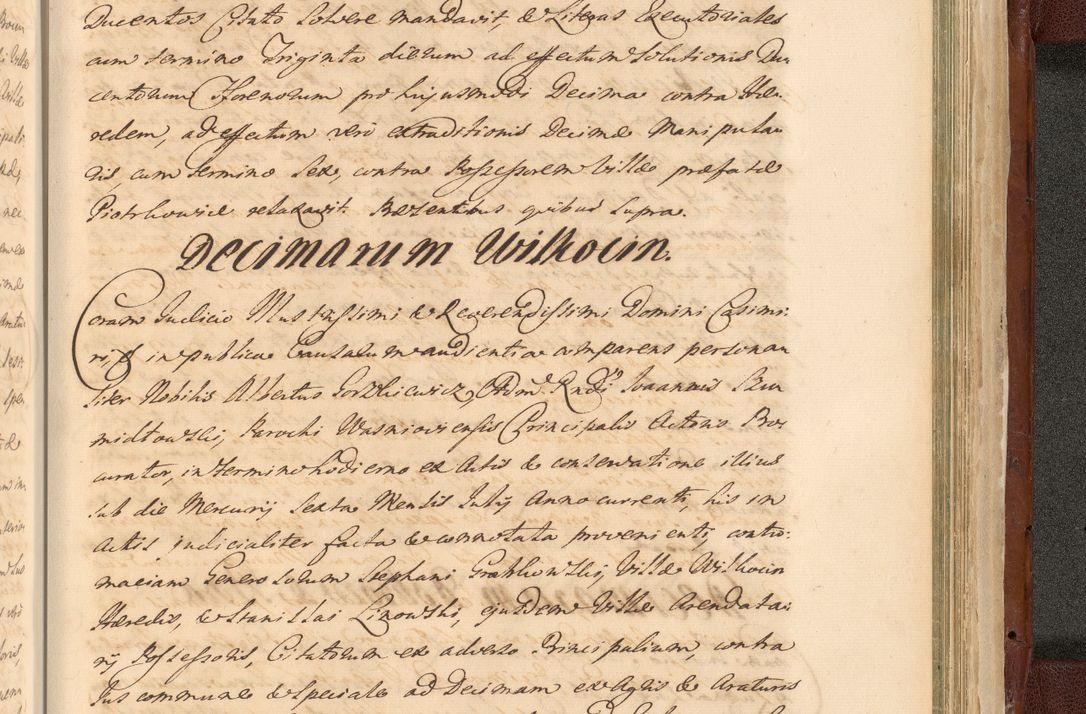 Ducentos Citato solvere mandavit, & Literas Executoriales
cum termino Triginta dierum ad effectum solutionis Du-
centorum Florenorum pro hujusmodi Decima contra Hæ-
redem, ad effectum vero extraditionis Decimæ Manipula-
ris, cum termino Sex, contra Possessorem Villæ præfatæ
Piotrkowice relaxavit. Præsentibus quibus supra.
Decimarum Wilkocin.
Coram Judicio Illustrissimi & Reverendissimi Domini Casimi-
ri, in publica Causarum audientia comparens persona-
liter Nobilis Albertus Gorzkiewicz, Adm. Rndi Joannis
Parochi Wasnioviensis Principalis Actoris Pro-
curator, in termino hodierno ex Actis & conservatione illius
sub die Mercurij Sexta Mensis Julij Anno currenti, his in
Actis judicialiter facta & connotata provenienti, contu-
maciam Generosorum Stephani Villæ Wilkocin
Hæredis, & Stanislai Linowski, ejusdem Villæ Arendata-
rij Possessoris, Citatorum ex adverso Principalium, contra
Jus commune & speciale ad Decimam ex Agris & Araturis